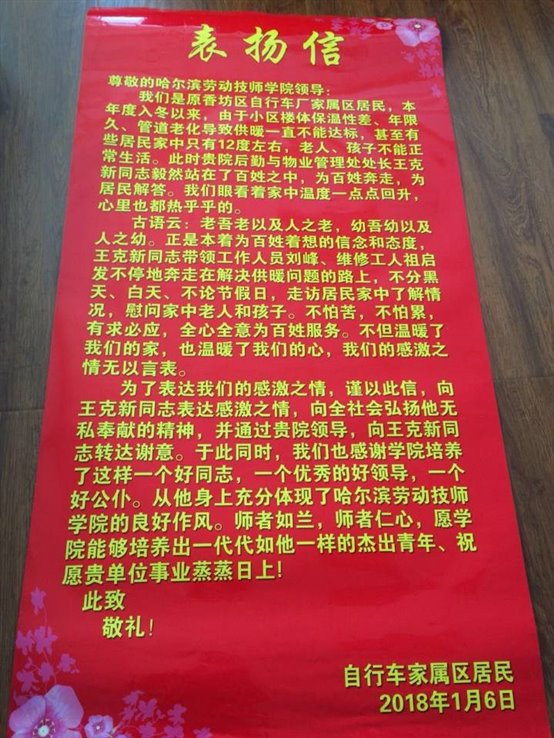 表扬信
尊敬的哈尔滨劳动技师学院领导：
我们是原香坊区自行车厂家属区居民，本
年度入冬以来，由于小区楼体保温性差、年限
久、管道老化导致供暖一直不能达标，甚至有
些居民家中只有12度左右，老人、孩子不能正
常生活。此时贵院后勤与物业管理处处长王克
新同志毅然站在了百姓之中，为百姓奔走，为
居民解答。我们眼看着家中温度一点点回升，
心里也都热乎乎的。
古语云：老吾老以及人之老，幼吾幼以及
人之幼。正是本着为百姓着想的信念和态度，
王克新同志带领工作人员刘峰、维修工人祖启
发不停地奔走在解决供暖问题的路上，不分黑
天、白天、不论节假日，走访居民家中了解情
况，慰问家中老人和孩子。不怕苦，不怕累，
有求必应，全心全意为百姓服务。不但温暖了
我们的家，也温暖了我们的心，我们的感激之
情无以言表。
为了表达我们的感激之情，谨以此信，向
王克新同志表达感激之情，向全社会弘扬他无
私奉献的精神，并通过贵院领导，向王克新同
志转达谢意。于此同时，我们也感谢学院培养
了这样一个好同志，一个优秀的好领导，一个
好公仆。从他身上充分体现了哈尔滨劳动技师
学院的良好作风。师者如兰，师者仁心，愿学
院能够培养出一代代如他一样的杰出青年、祝
愿贵单位事业蒸蒸日上！
此致
敬礼！
自行车家属区居民
2018年1月6日